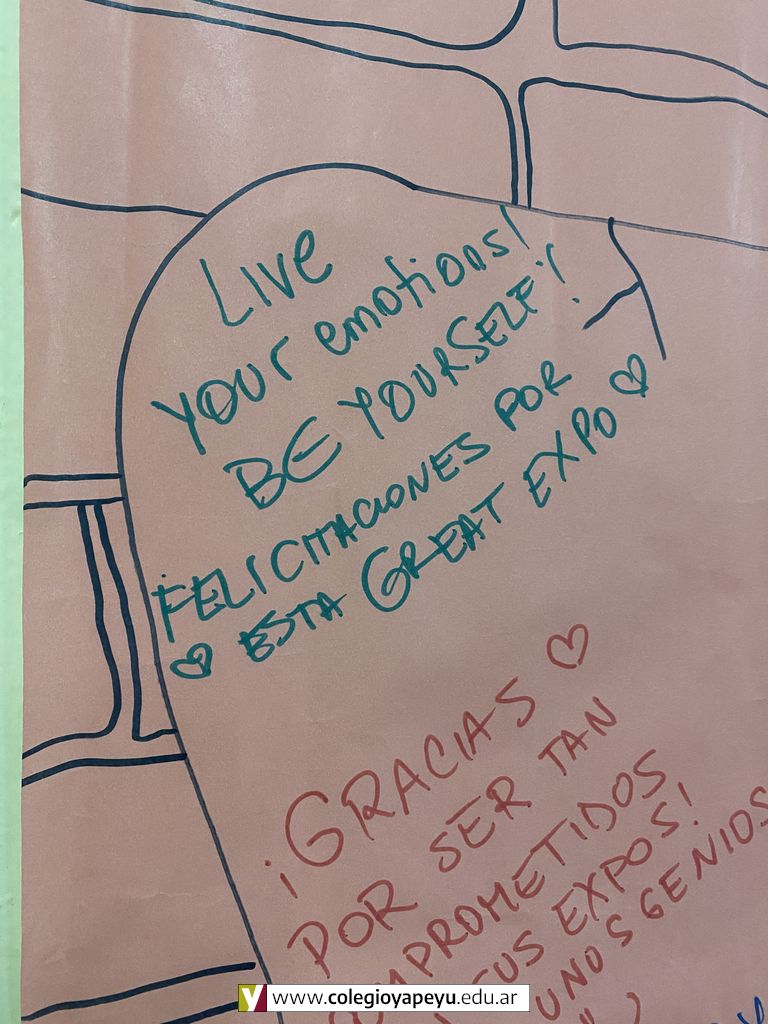 LIVE
YOUR emotions!
BE YOURSELF!
¡FELICITACIONES POR
ESTA GREAT EXPO
¡GRACIAS
POR SER TAN
COMPROMETIDOS
SUS EXPOS!
UNOS GENIOS
www.colegioyapeyu.edu.ar